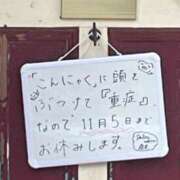 「こんにゃく」に頭を
ぶつけて『重症』。
なので11月5日まで
お休みします。